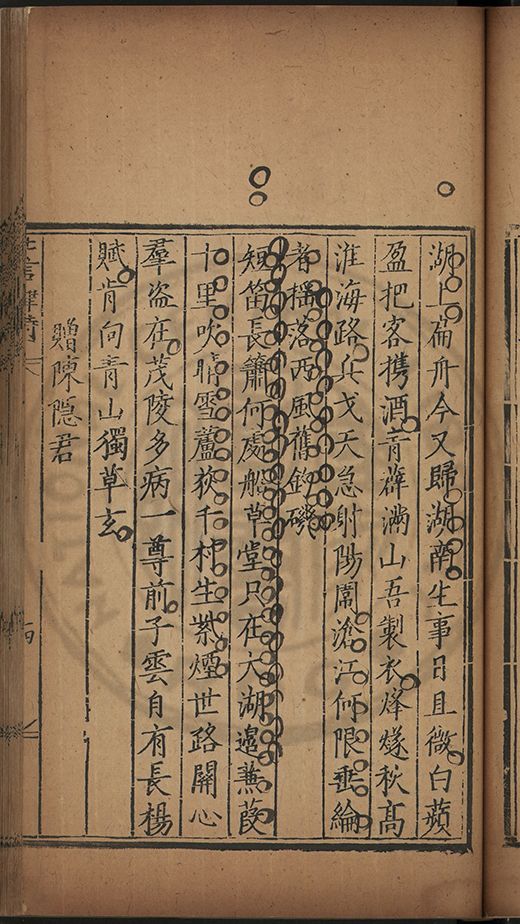 湖上扁舟今又歸湖南生事日且微白蘋
盈把客携酒青薜滿山吾製衣烽燧秋高
淮海路兵戈天急射陽闈滄江何限垂綸
者揺落西風舊釣磯
短笛長簫何處船草堂只在太湖邉蒹葭
十里吹晴雪蘆荻千村生紫煙世路關心
羣盗在茂陵多病一尊前子雲自有長楊
賦肯向青山獨草玄
贈陳隠君